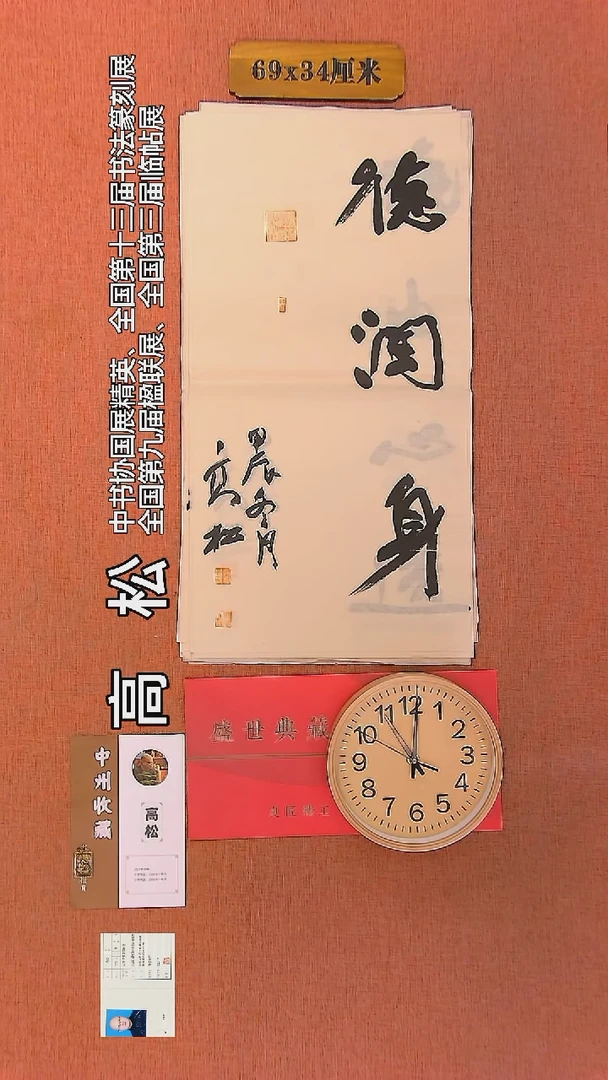 69x34厘米
德润身
甲辰冬月
高松
高 松
中书协国展精英、全国第十三届书法篆刻展
全国第九届楹联展、全国第三届临帖展
盛世典藏
高松
12
1
2
3
4
5
6
7
8
9
10
11